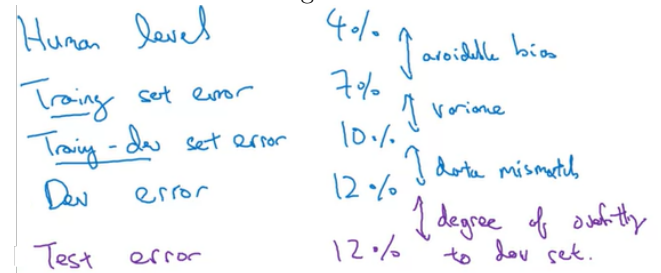 Human level 4%
avoidable bias
Traing set error 7%
variance
Traing-dev set error 10%
data mismatch
Dev error 12%
degree of overfitting
Test error 12% to dev set.